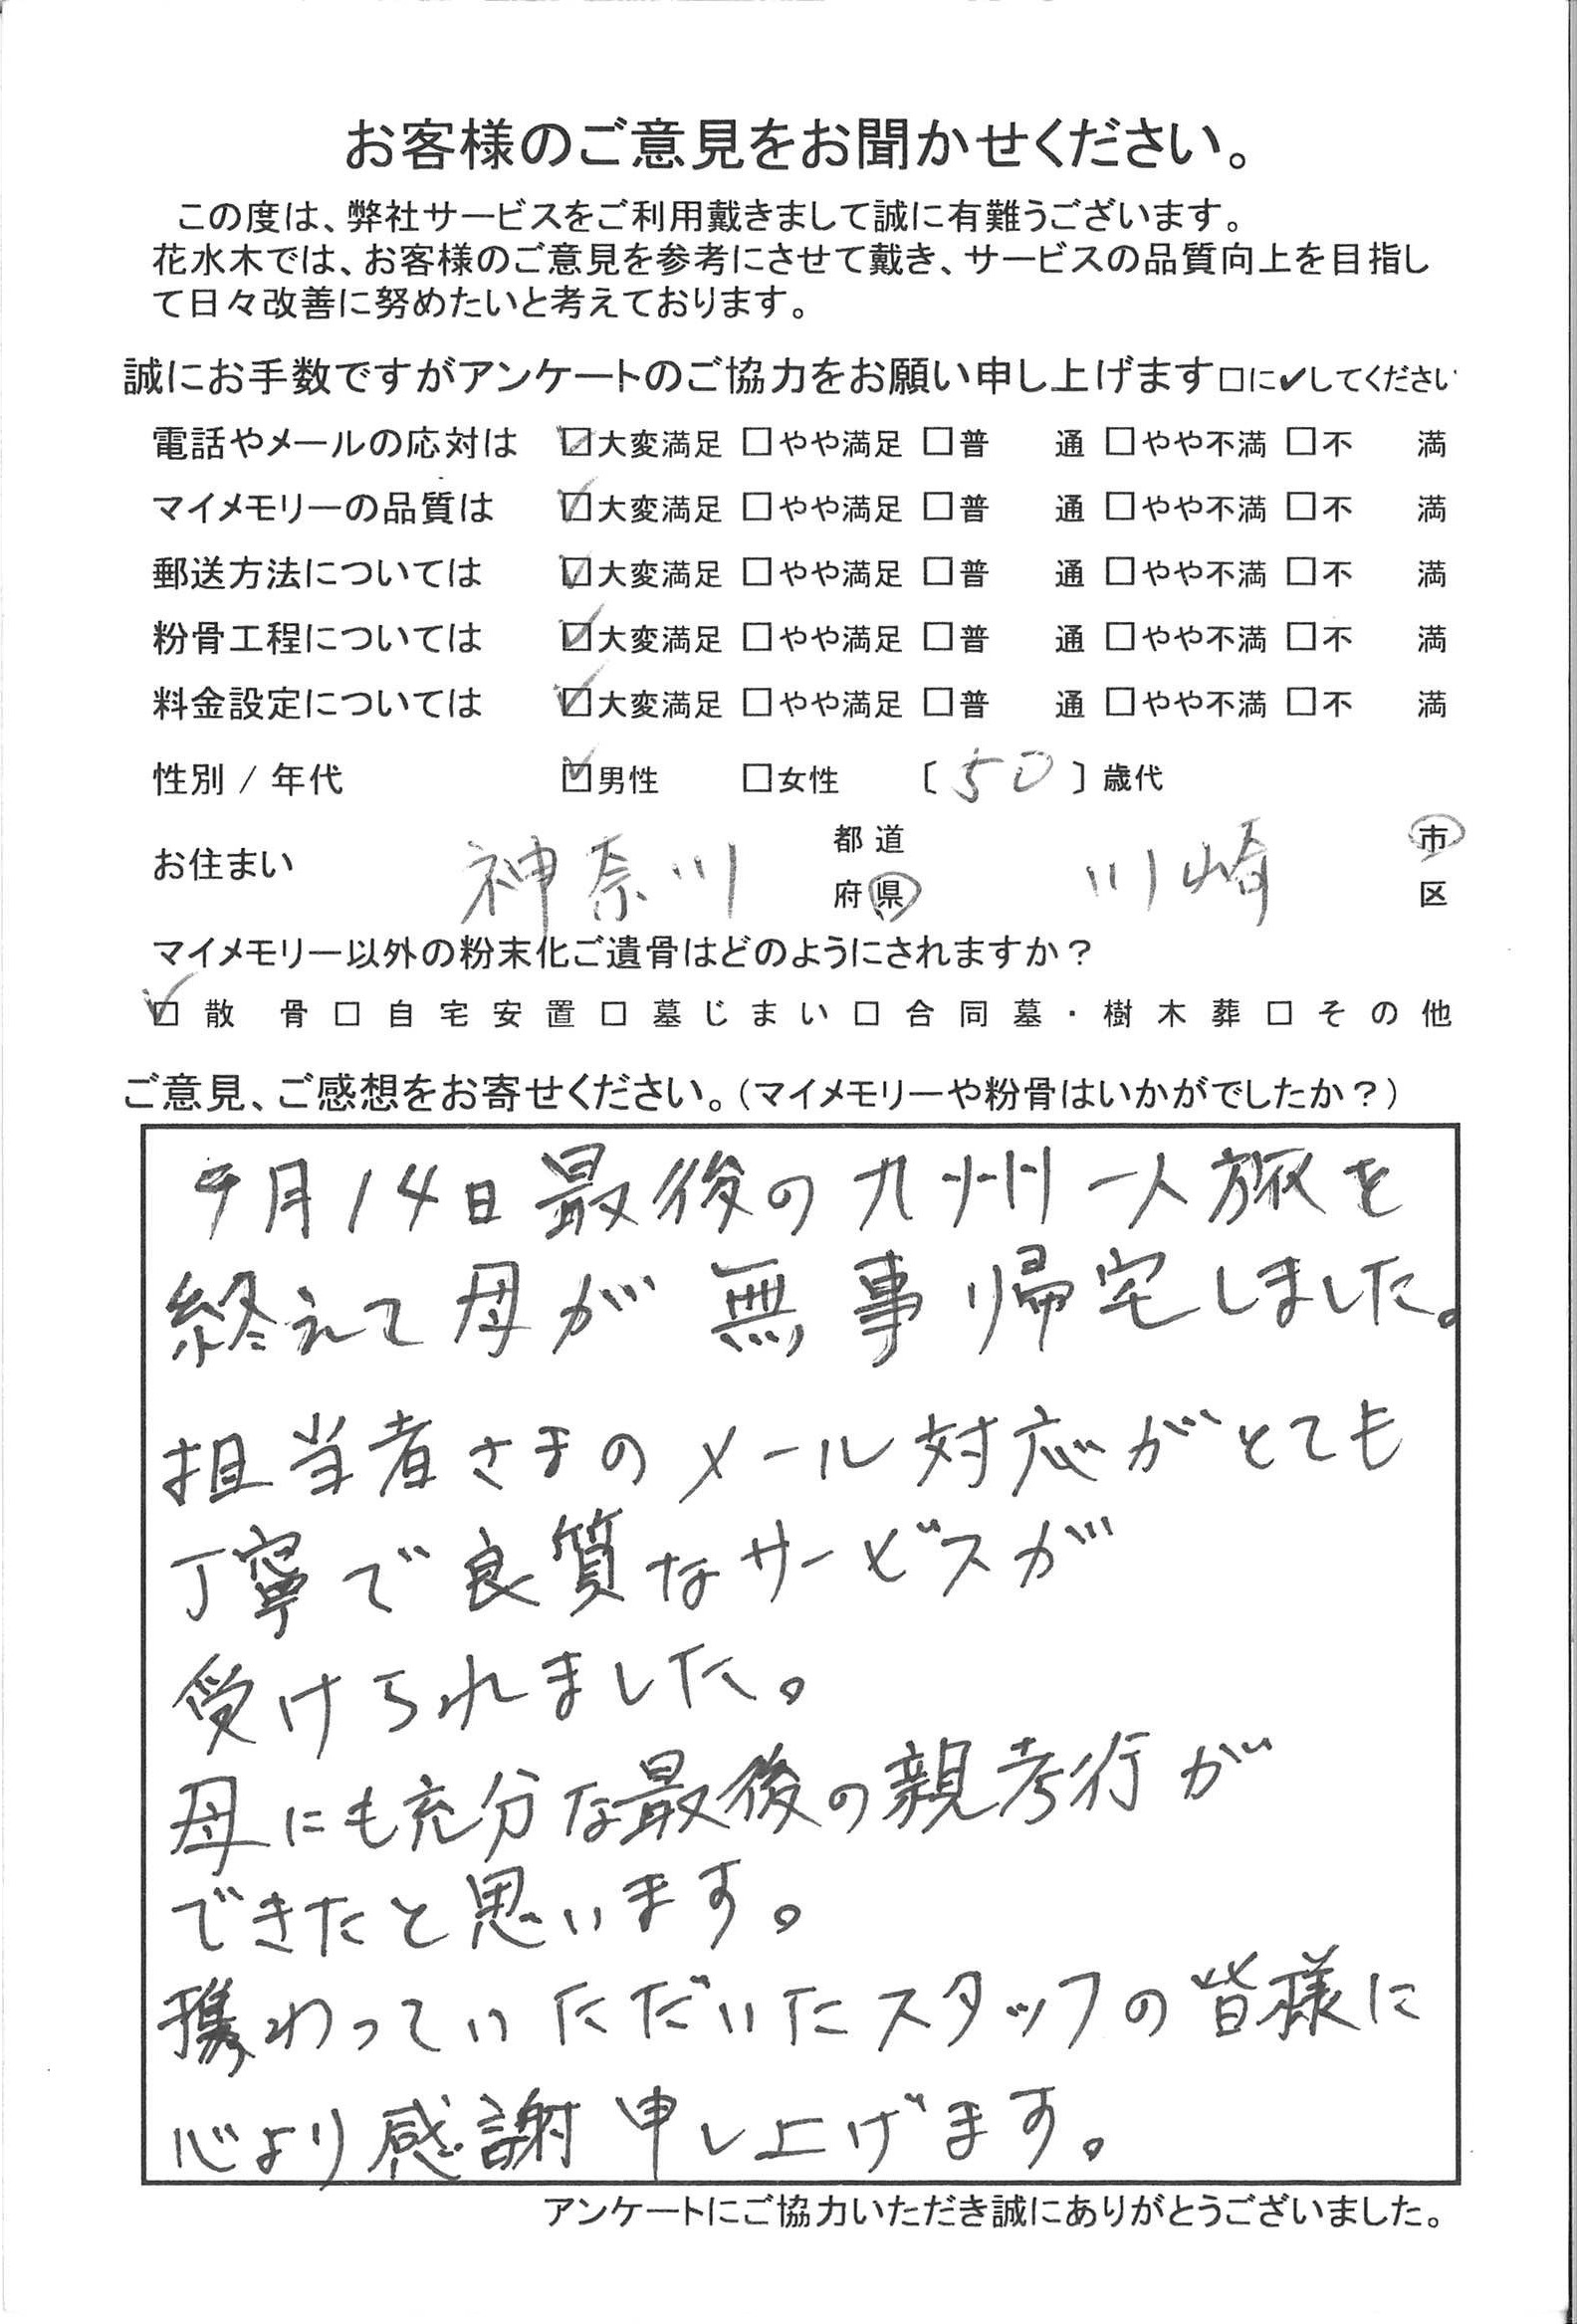 お客様のご意見をお聞かせください。
この度は、弊社サービスをご利用戴きまして誠に有難うございます。
花水木では、お客様のご意見を参考にさせて戴き、サービスの品質向上を目指し
て日々改善に努めたいと考えております。
誠にお手数ですがアンケートのご協力をお願い申し上げます□に✔してください
電話やメールの応対は ☑大変満足 □やや満足 □普 通 □やや不満 □不 満
マイメモリーの品質は ☑大変満足 □やや満足 □普 通 □やや不満 □不 満
郵送方法については ☑大変満足 □やや満足 □普 通 □やや不満 □不 満
粉骨工程については ☑大変満足 □やや満足 □普 通 □やや不満 □不 満
料金設定については ☑大変満足 □やや満足 □普 通 □やや不満 □不 満
性別 / 年代 ☑男性 □女性 〔 50 〕歳代
お住まい 神奈川 都道府県 川崎 市区
マイメモリー以外の粉末化ご遺骨はどのようにされますか?
☑散 骨□自宅安置□墓じまい□合同墓・樹木葬□その他
ご意見、ご感想をお寄せください。(マイメモリーや粉骨はいかがでしたか?)
9月14日最後の九州一人旅を
終えて母が無事帰宅しました。
担当者さまのメール対応がとても
丁寧で良質なサービスが
受けられました。
母にも充分な最後の親孝行が
できたと思います。
携わっていただいたスタッフの皆様に
心より感謝申し上げます。
アンケートにご協力いただき誠にありがとうございました。